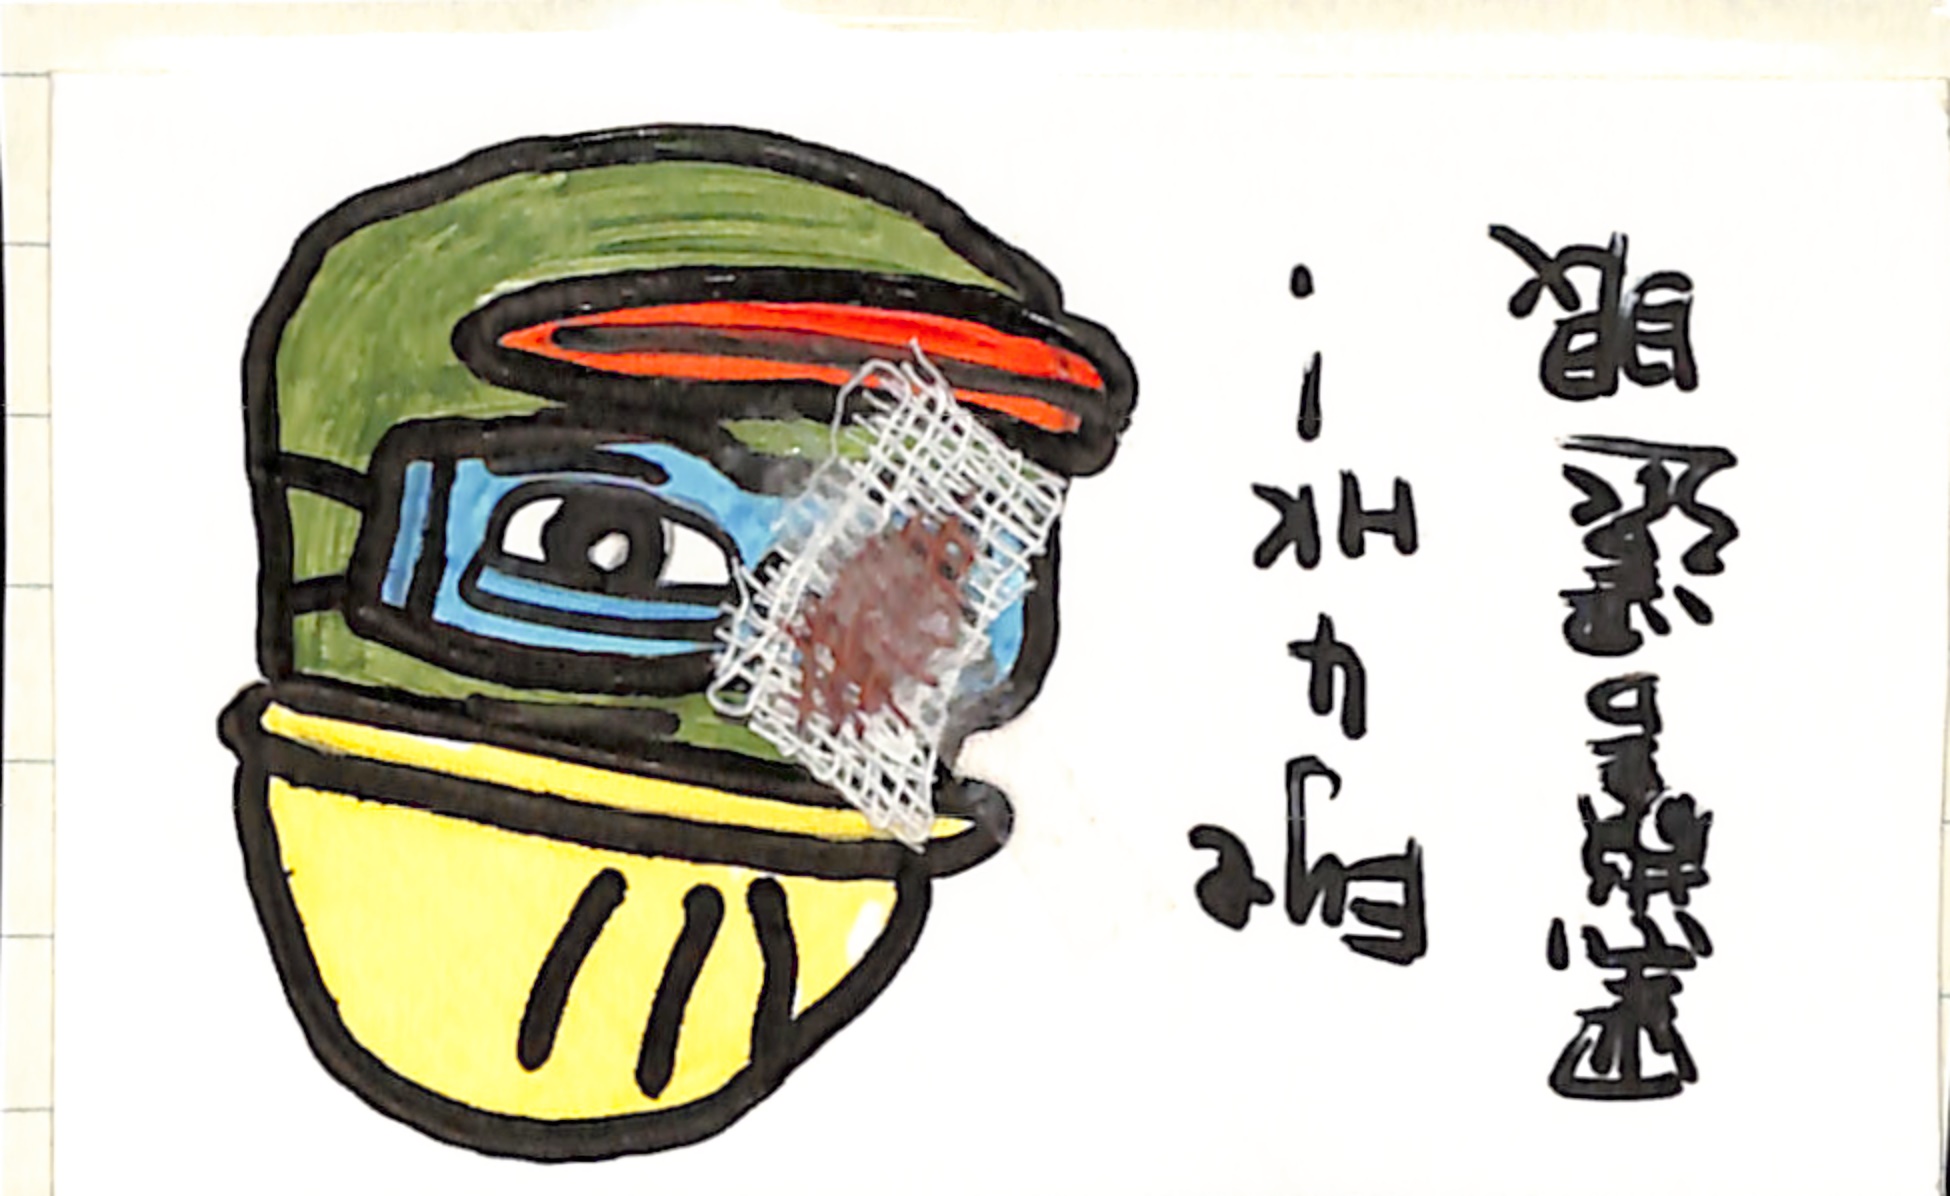 黑警還眼
Eye
4
HK
!